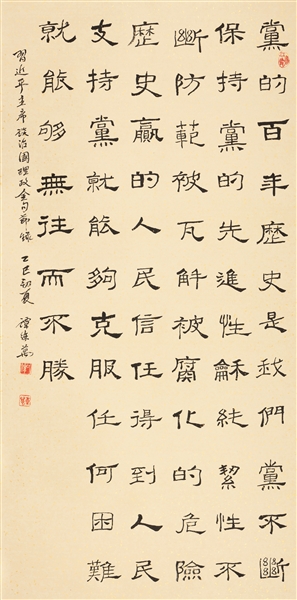 黨的百年歷史是我們黨不斷
保持黨的先進性龢純絜性不
斷防範被瓦解被腐化的危險
歷史贏的人民信任得到人民
支持黨就能夠克服任何困難
就能夠無往而不勝
習近平主席談治國理政金句節錄 乙巳初夏